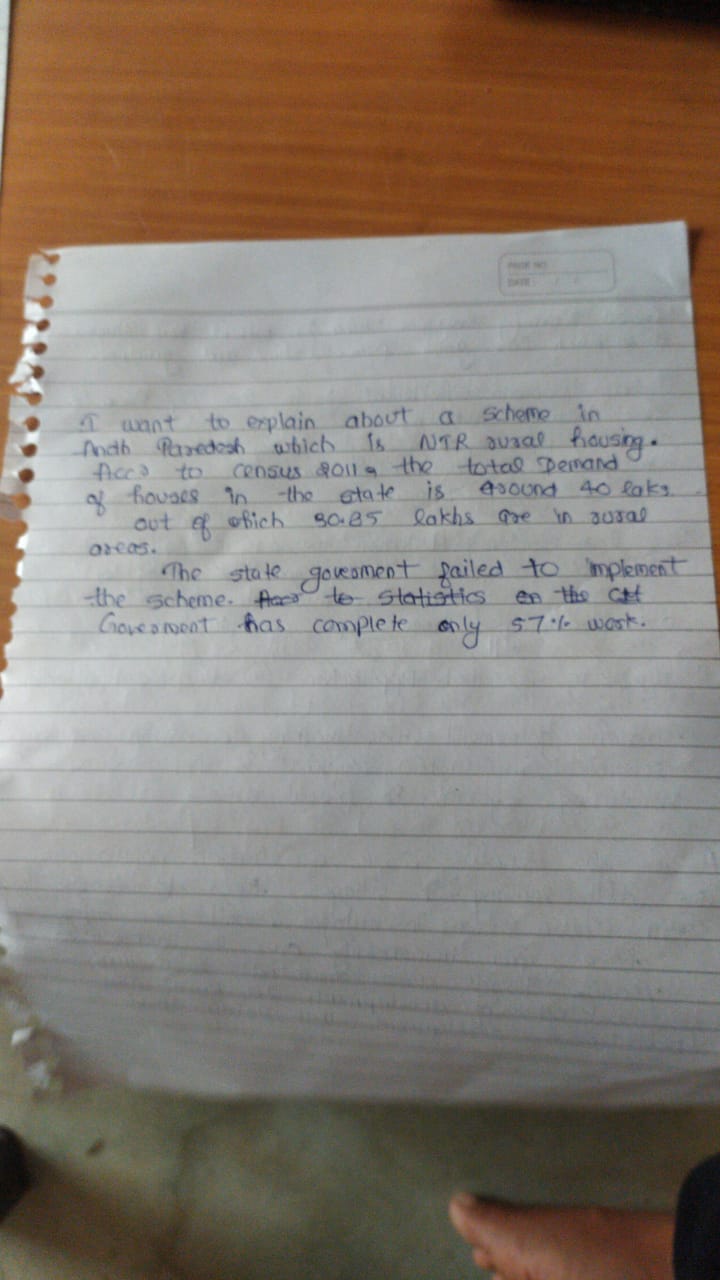 PAGE NO
DATE / /
I want to explain about a scheme in
Andh Paredesh which is NTR rural housing.
Acco to census 2011, the total Demand
of houses in the state is around 40 laks
out of which 30.85 lakhs are in rural
areas.
The state goverment failed to implement
the scheme. Acco to Statistics on the
Goverment has complete only 57% work.